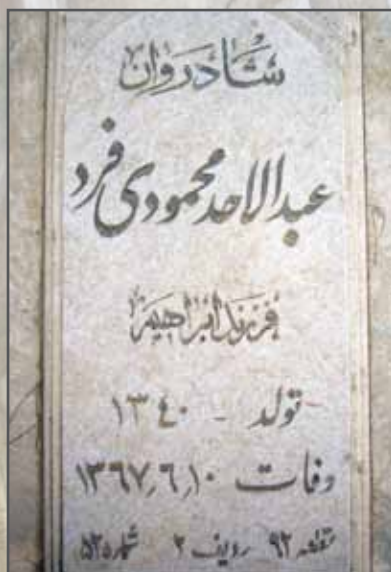 شادروان
عبدالاحد محمودی فرد
فرزند ابراهیم
تولد - ۱۳٤۰
وفات ۱۳٦٧٫٦٫۱۰
قطعه ۹۲ ردیف ۲ شماره ۵۲